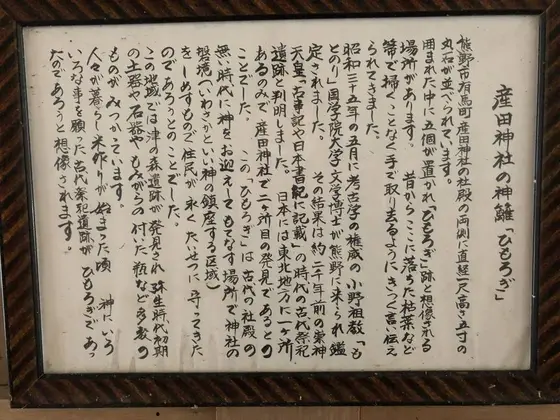 産田神社の神籬「ひもろぎ」
熊野市有馬町産田神社の社殿の両側に直経一尺高さ五寸の
丸石が並べられています
囲まれた中に五個が置かれ「ひもろぎ」跡と想像される
場所があります。昔からここに落ちた枯葉など
箒で掃くことなく手で取り去るようにきつく言い伝え
られてきました。
昭和三十五年の五月に考古学の権威の小野祖教「も
とのり」国学院大学文学博士が熊野に来られ鑑
定されました。その結果は約二千年前の崇神
天皇「古事記や日本書記に記載」の時代の古代祭祀
遺跡と判明しました。日本には東北地方に一ヶ所
あるのみで産田神社で二ヶ所目の発見であるとの
ことでした。この「ひもろぎ」は古代の社殿の
無い時代に神をお迎えしてもてなす場所で神社の
磐境(いわさかといい神の鎮座する区域)
をしめすもので住民が永くたいせつに守ってきた
のであろうとのことでした。
この地域では津の森遺跡が発見され弥生時代初期
の土器や石器やもみがらの付いた瓶など多数の
ものがみつかっています。
人々が暮らし米作りが始まった頃神にいろ
いろな事を願った古代祭祀遺跡がひもろぎであっ
たのであろうと想像されます。